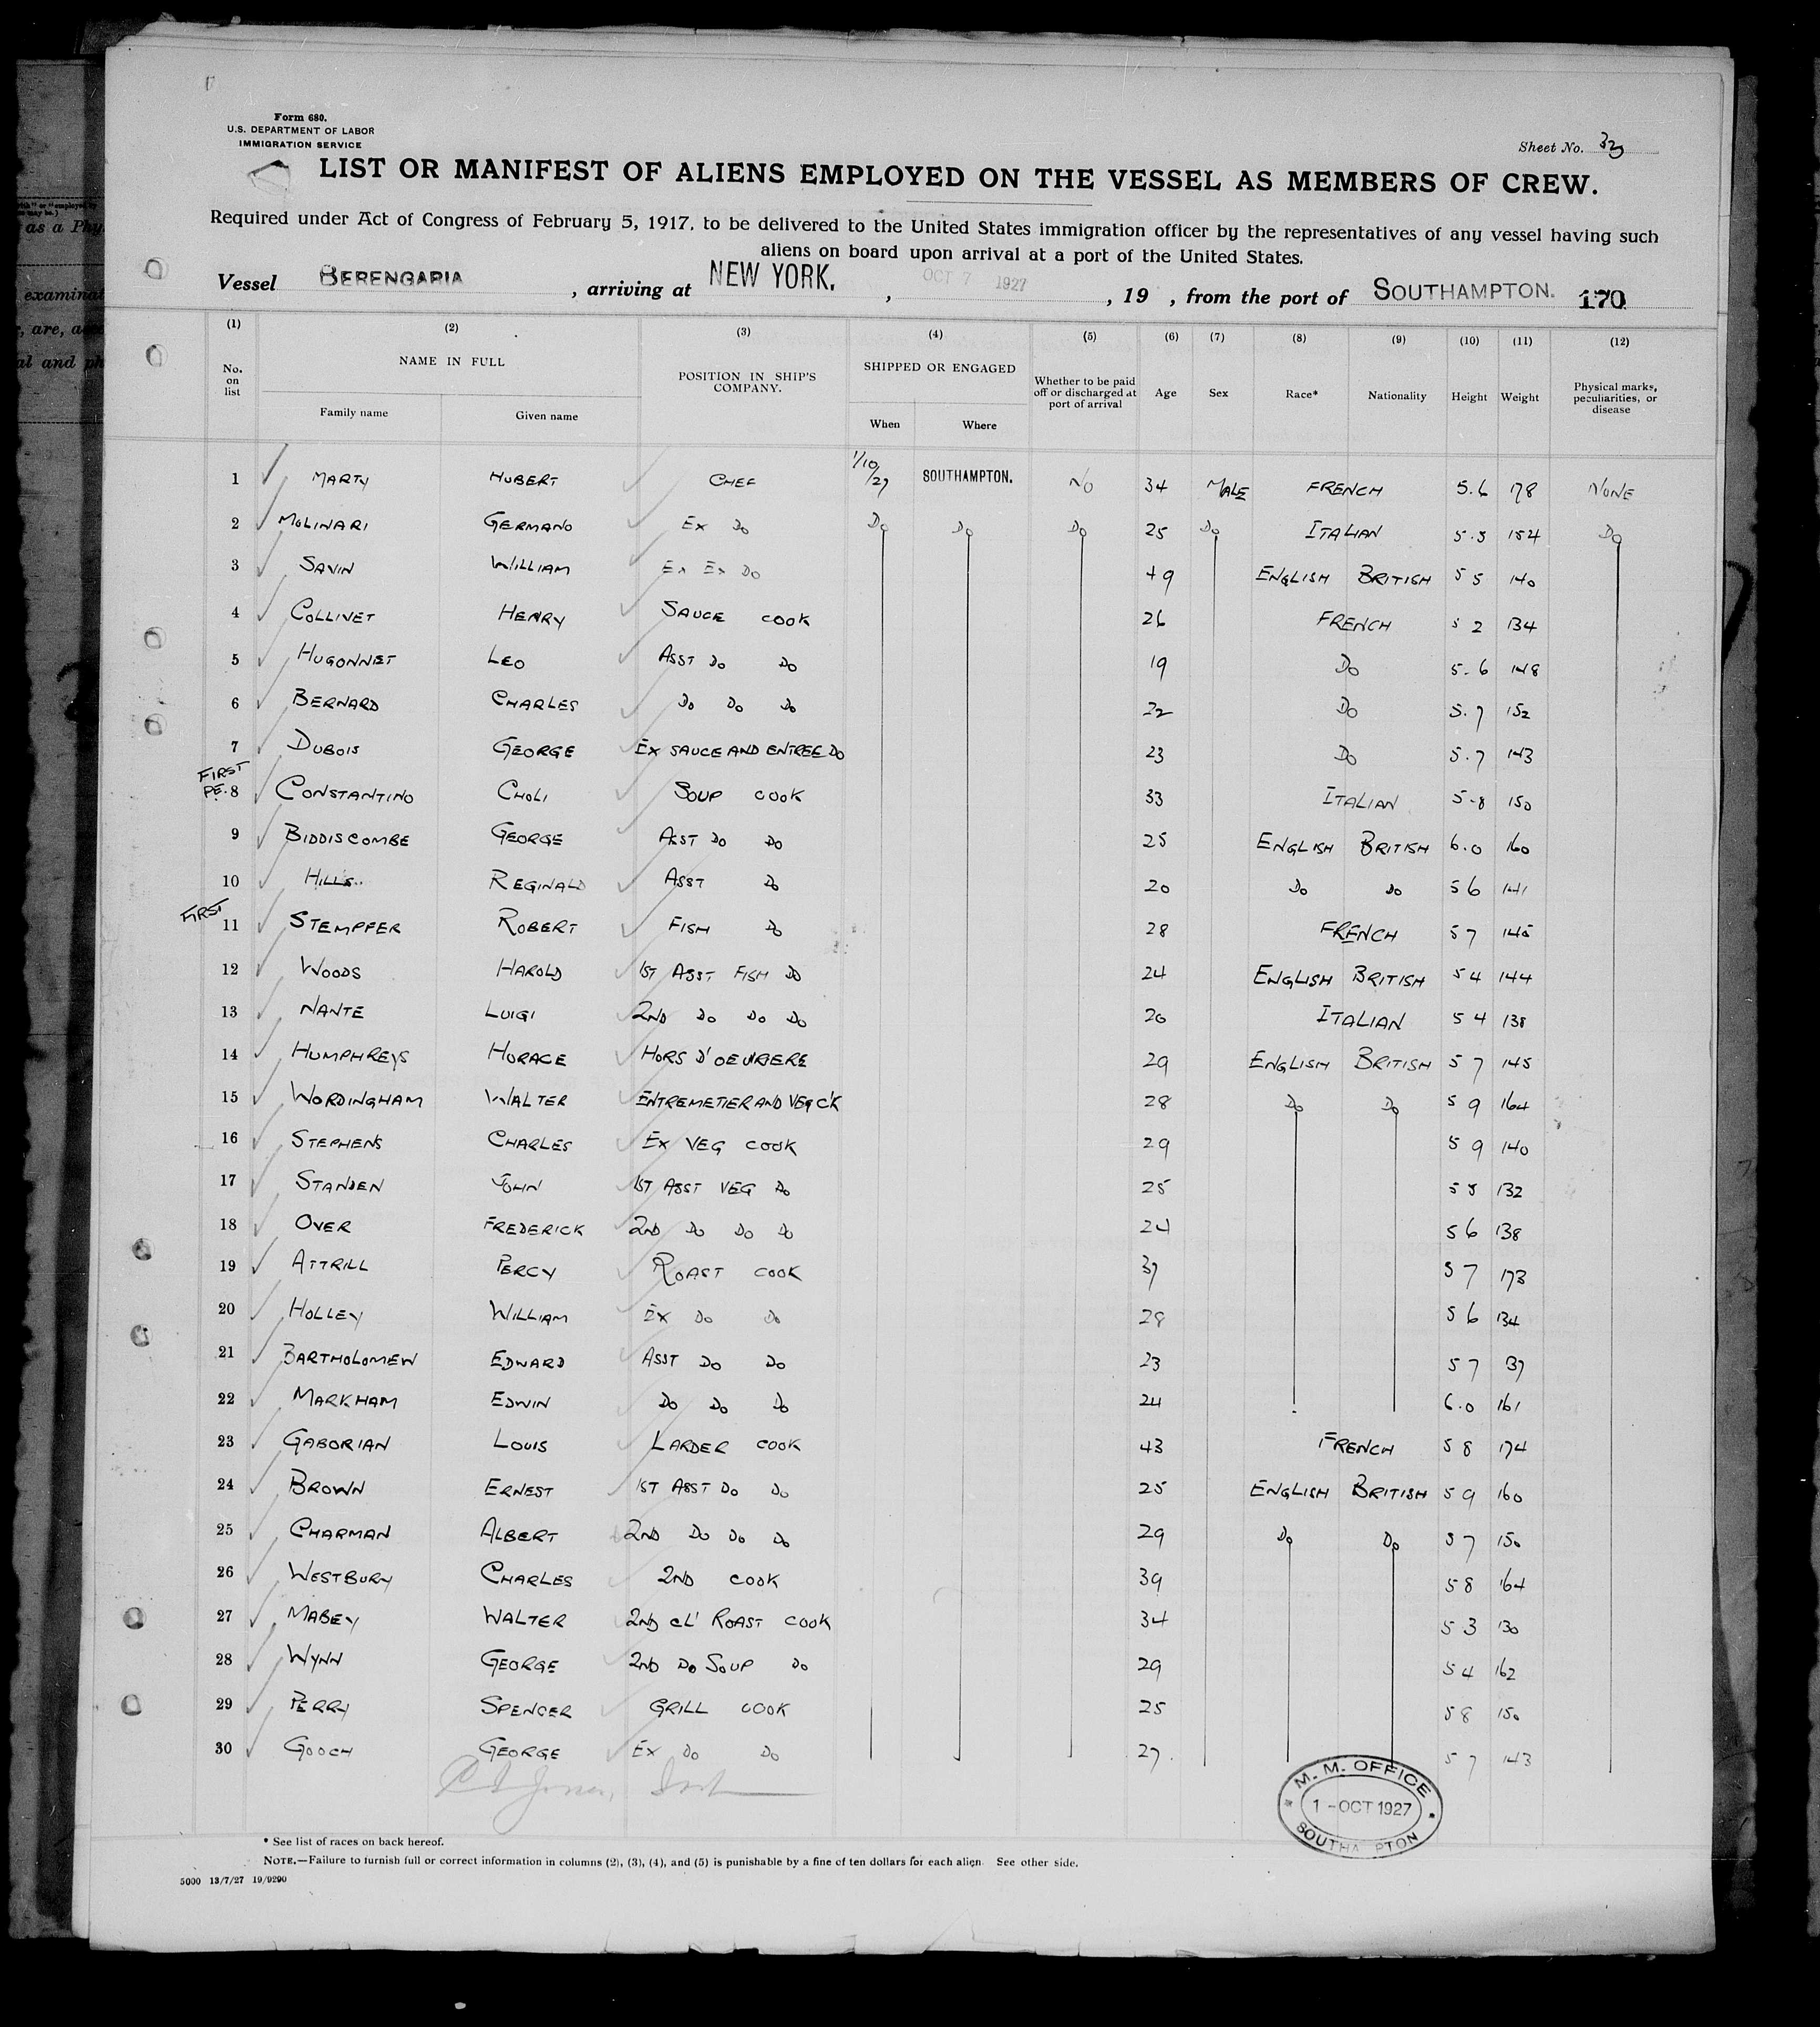 Form 680.
U.S. DEPARTMENT OF LABOR
IMMIGRATION SERVICE
Sheet No.
LIST OR MANIFEST OF ALIENS EMPLOYED ON THE VESSEL AS MEMBERS OF CREW.
Required under Act of Congress of February 5, 1917, to be delivered to the United States immigration officer by the representatives of any vessel having such
aliens on board upon arrival at a port of the United States.
Vessel BERENGARIA , arriving at NEW YORK. , OCT 7 1927 , 19 , from the port of SOUTHAMPTON. 170
(1) (2) (3) (4) (5) (6) (7) (8) (9) (10) (11) (12)
No. on list NAME IN FULL Family name Given name POSITION IN SHIP'S COMPANY. SHIPPED OR ENGAGED When Where Whether to be paid off or discharged at port of arrival Age Sex Race* Nationality Height Weight Physical marks, peculiarities, or disease
1 MARTY HUBERT CHEF 1/10/27 SOUTHAMPTON. NO 34 MALE FRENCH 5.6 178 NONE
2 MOLINARI GERMANO EX DO DO DO DO 25 DO ITALIAN 5.5 154 DO
3 SAVIN WILLIAM EX EX DO 49 ENGLISH BRITISH 5 5 140
4 COLLIVET HENRY SAUCE COOK 26 FRENCH 5 2 134
5 HUGONNET LEO ASST DO DO 19 DO 5.6 148
6 BERNARD CHARLES DO DO DO 22 DO 5.7 152
7 DUBOIS GEORGE EX SAUCE AND ENTREE DO 23 DO 5.7 143
FIRST
PE. 8 CONSTANTINO CHOLI SOUP COOK 33 ITALIAN 5.8 150
9 BIDDISCOMBE GEORGE ASST DO DO 25 ENGLISH BRITISH 6.0 160
10 HILLS REGINALD ASST DO 20 DO DO 5 6 141
FIRST 11 STEMPFER ROBERT FISH DO 28 FRENCH 5 7 145
12 WOODS HAROLD 1ST ASST FISH DO 24 ENGLISH BRITISH 5 4 144
13 NANTE LUIGI 2ND DO DO DO 20 ITALIAN 5 4 138
14 HUMPHREYS HORACE HORS D'OEUVRIERE 29 ENGLISH BRITISH 5 7 145
15 WORDINGHAM WALTER ENTREMETIER AND VEG C'K 28 DO DO 5 9 164
16 STEPHENS CHARLES EX VEG COOK 29 5 9 140
17 STANDEN JOHN 1ST ASST VEG DO 25 5 5 132
18 OVER FREDERICK 2ND DO DO DO 24 5 6 138
19 ATTRILL PERCY ROAST COOK 37 5 7 173
20 HOLLEY WILLIAM EX DO DO 28 5 6 134
21 BARTHOLOMEW EDWARD ASST DO DO 23 5 7 137
22 MARKHAM EDWIN DO DO DO 24 6.0 161
23 GABORIAN LOUIS LARDER COOK 43 FRENCH 5 8 174
24 BROWN ERNEST 1ST ASST DO DO 25 ENGLISH BRITISH 5 9 160
25 CHARMAN ALBERT 2ND DO DO DO 29 DO DO 5 7 150
26 WESTBURY CHARLES 2ND COOK 39 5 8 164
27 MABEY WALTER 2ND CL' ROAST COOK 34 5 3 130
28 WYNN GEORGE 2ND DO SOUP DO 29 5 4 162
29 PERRY SPENCER GRILL COOK 25 5 8 150
30 GOOCH GEORGE EX DO DO 27. 5 7 143
M. M. OFFICE
1 - OCT 1927
SOUTHA PTON
* See list of races on back hereof.
NOTE.—Failure to furnish full or correct information in columns (2), (3), (4), and (5) is punishable by a fine of ten dollars for each alien. See other side.
5000 13/7/27 19/9290